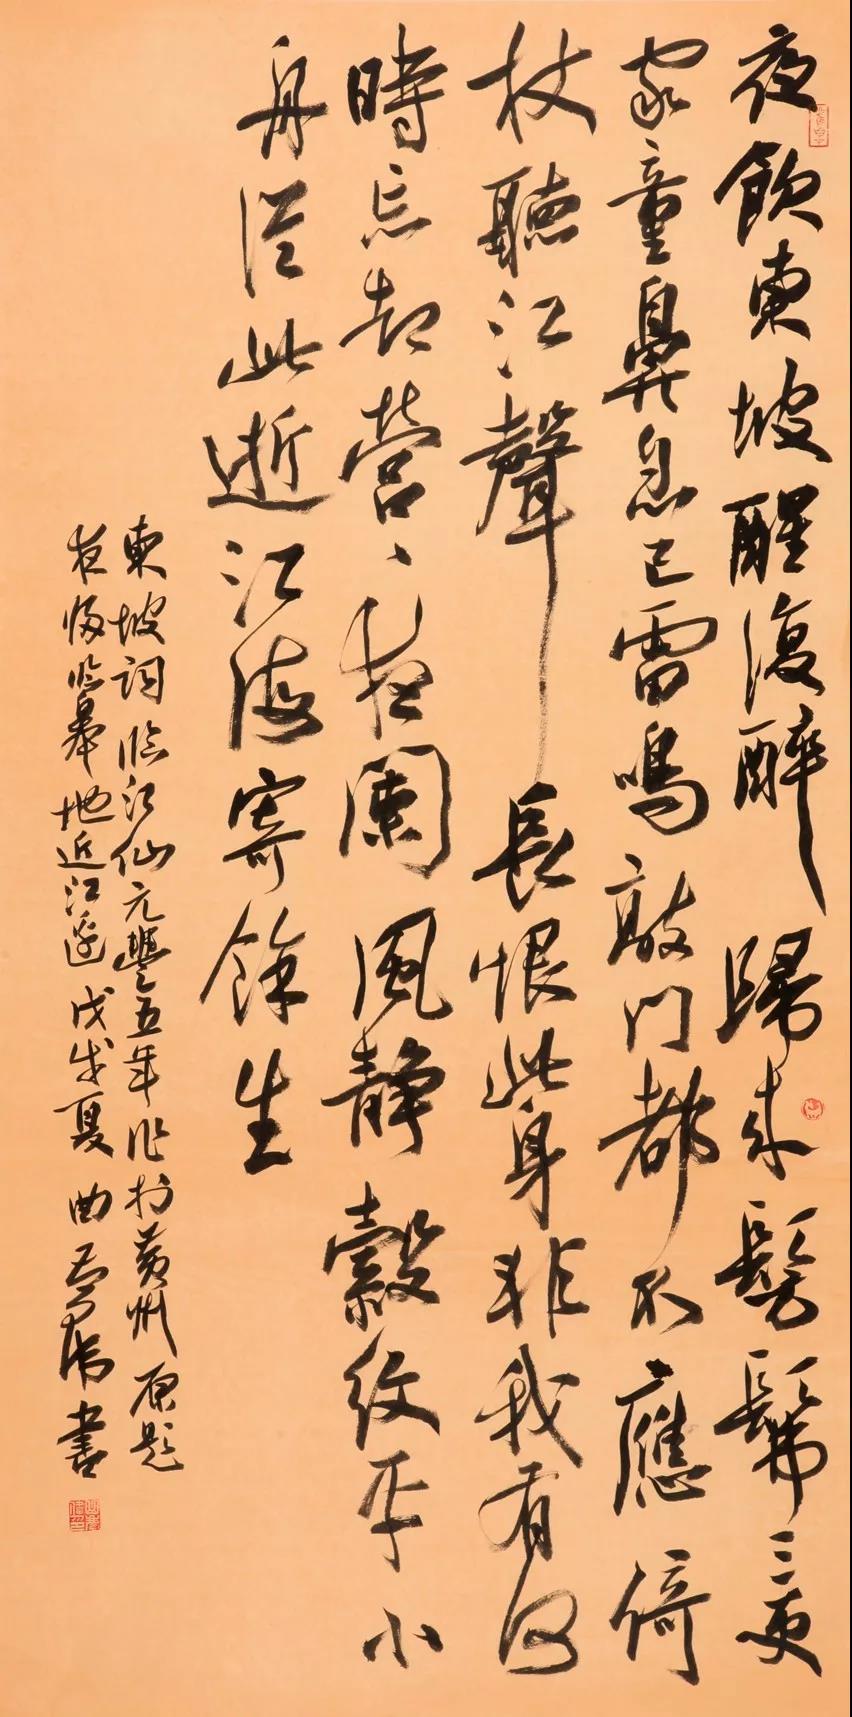 夜飲東坡醒復醉歸來髣髴三更
家童鼻息已雷鳴敲门都不應倚
杖聽江聲長恨此身非我有何
時忘却營〻夜闌風静縠紋平小
舟從此逝江海寄餘生
東坡詞臨江仙元豐五年作於黄州原題
夜歸临皋地近江邊戊戌夏曲書